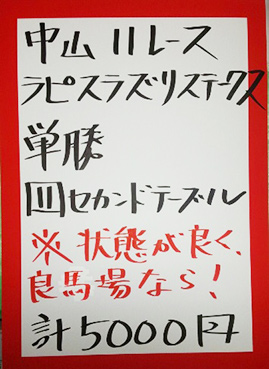 中山11レース
ラピスラズリステークス
単勝
⑪セカンドテーブル
※状態が良く、
良馬場なら!
計5000円